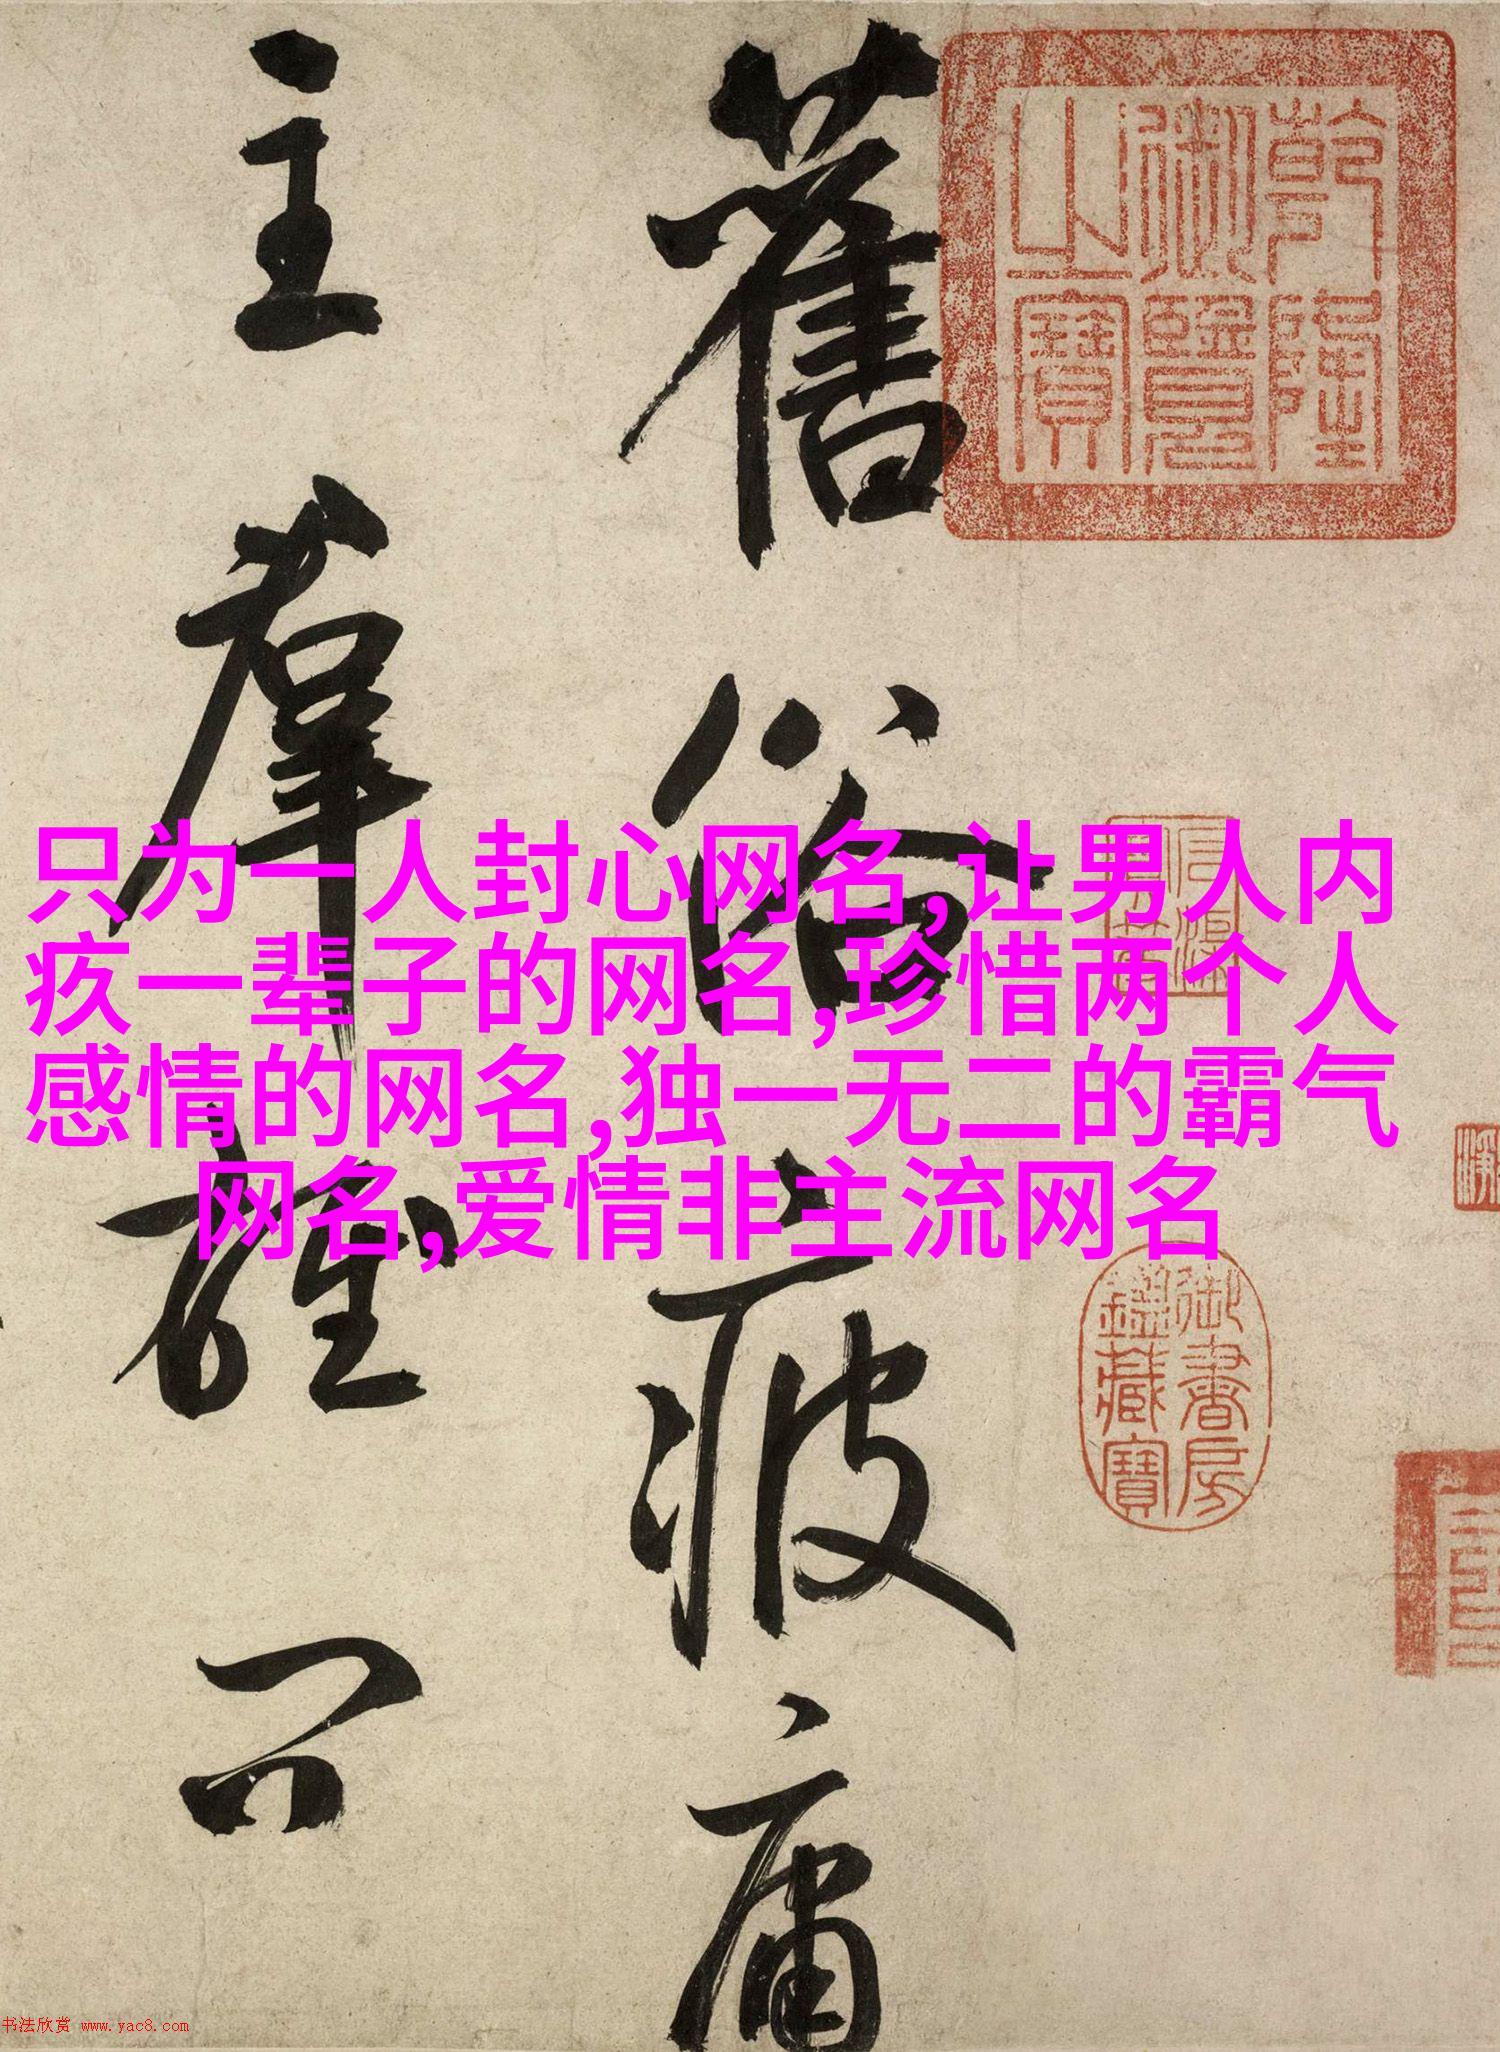 舊俗疲庸
主羣雄只
乾隆御覽之寶
只为一人封心网名,让男人内
疚一辈子的网名,珍惜两个人
感情的网名,独一无二的霸气
网名,爱情非主流网名
御書房鑑藏寶
书法欣赏 www.yac8.com